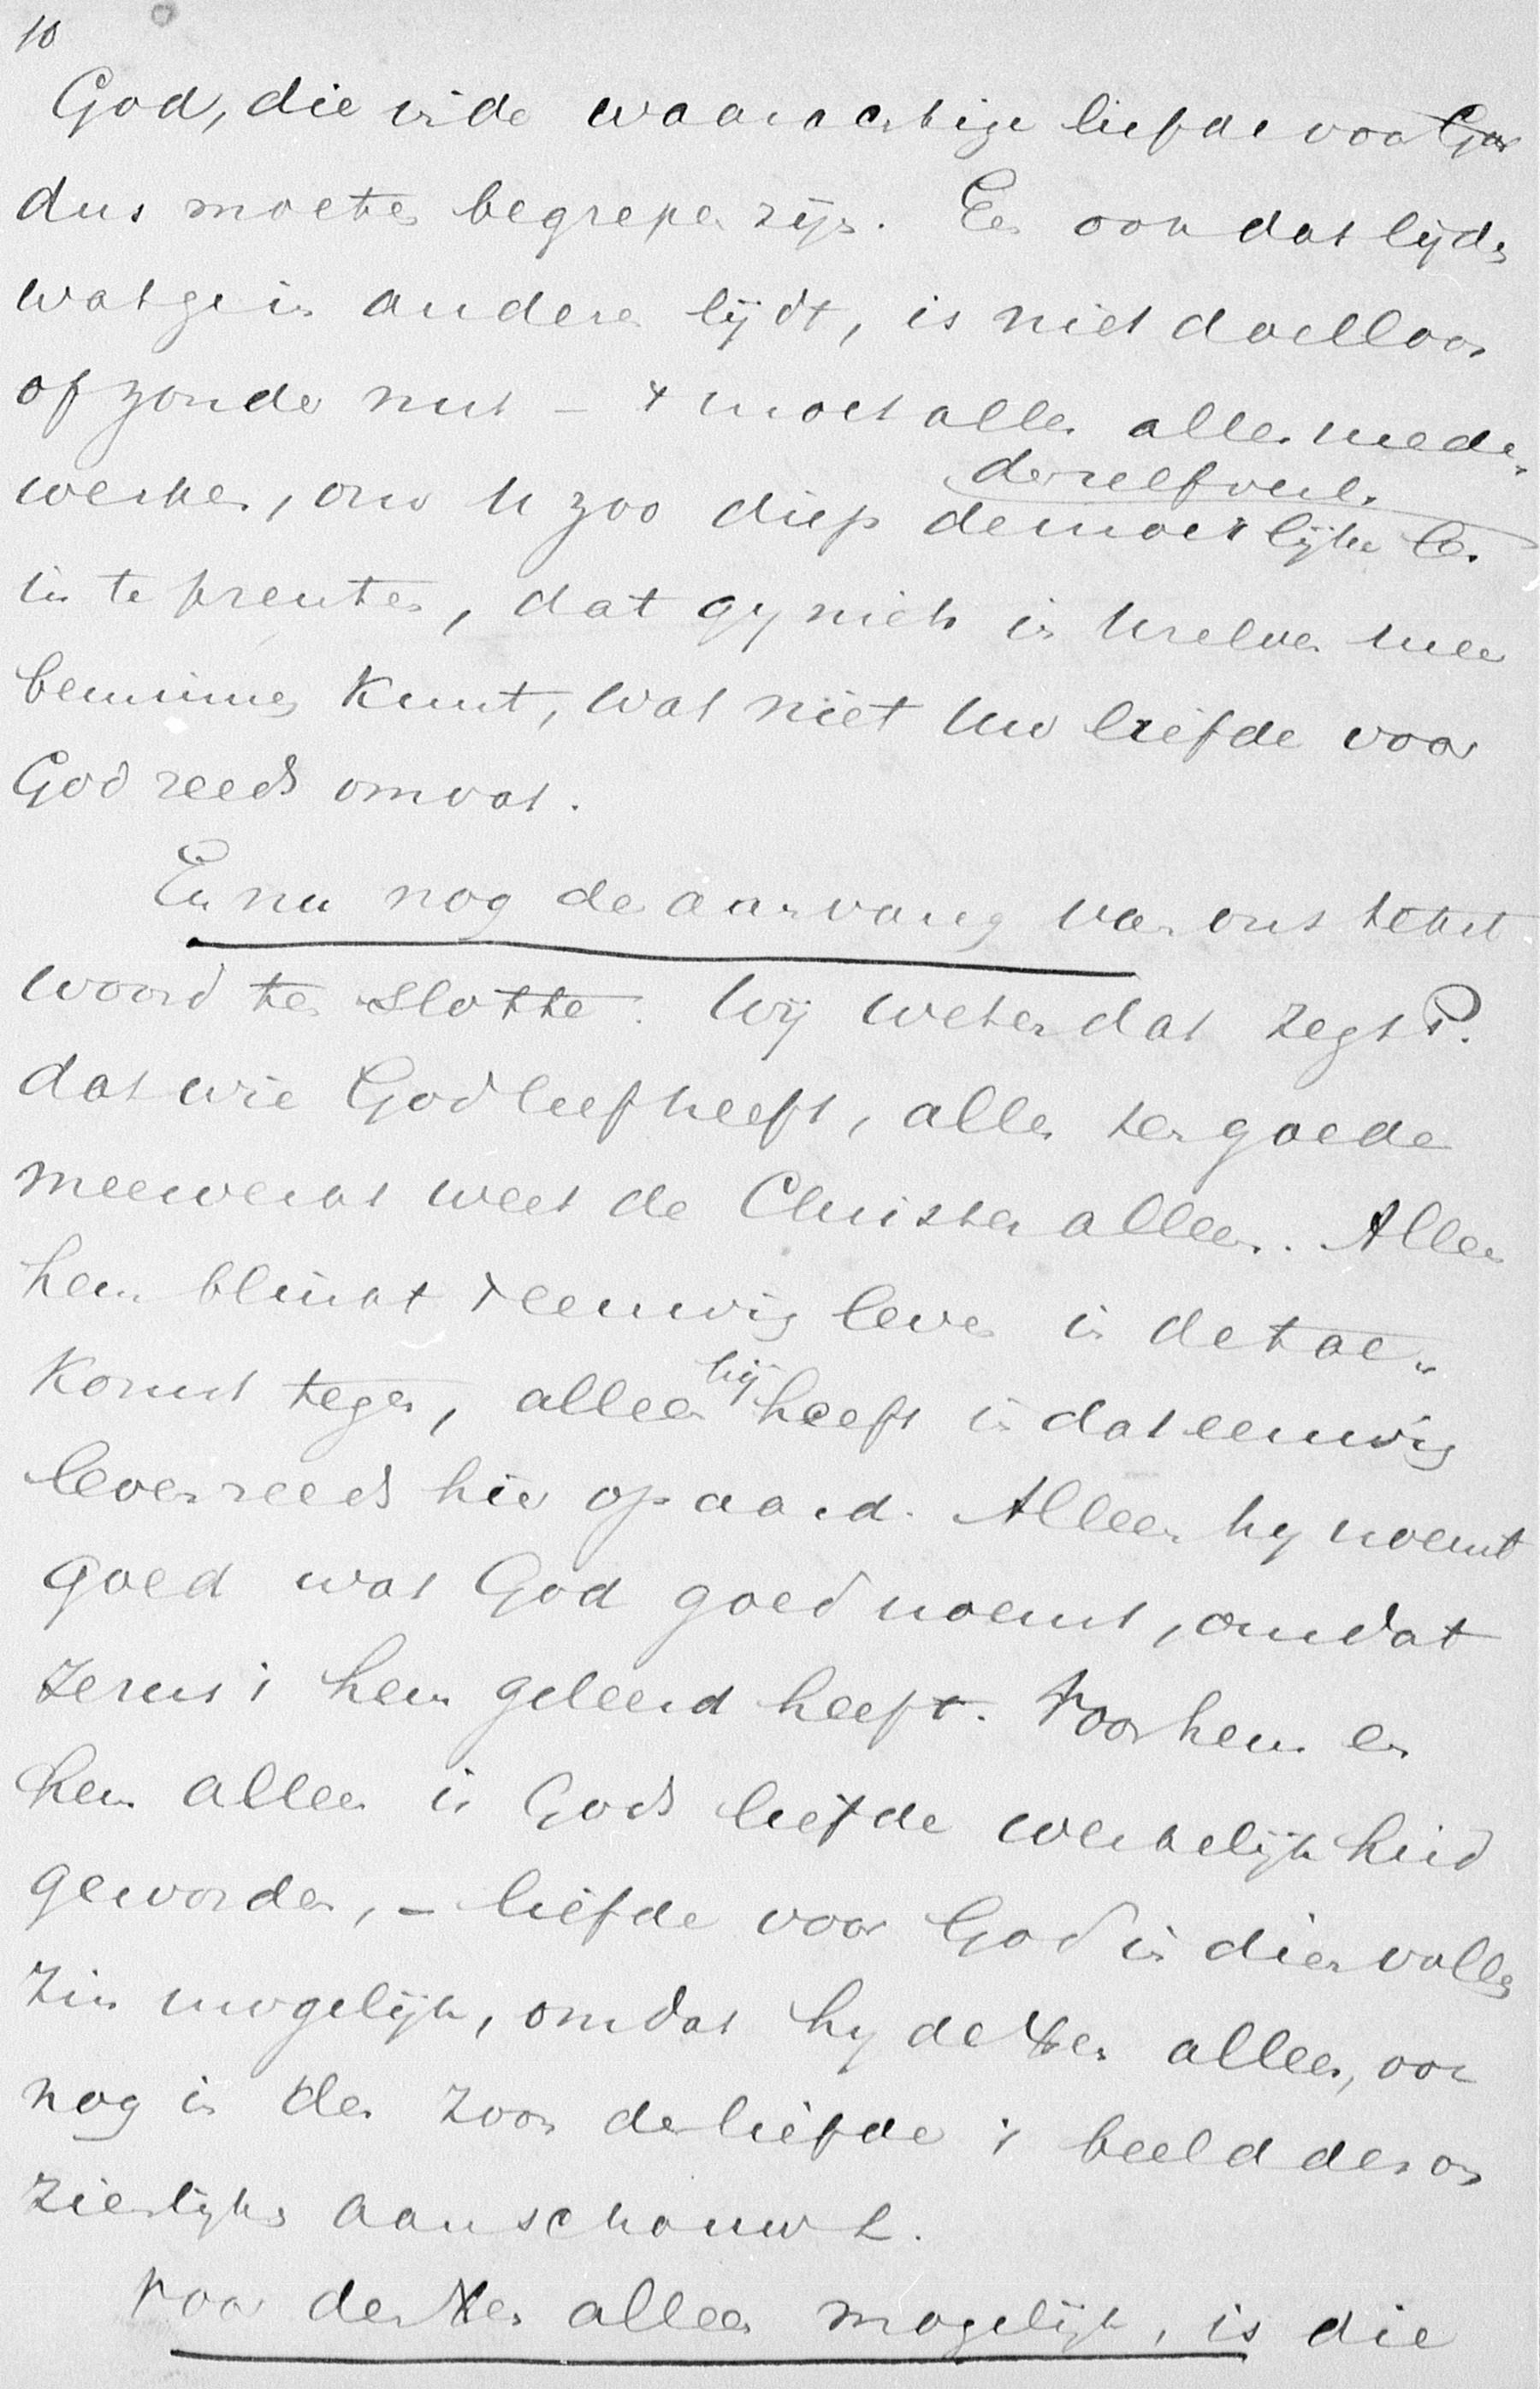 10
God, die in de waarachtige liefde voor God
dus moeten begrepen zijn. En ook dat lijden
wat ge in anderen lijdt, is niet doelloos
of zonder nut – 't moet alles alles mede-
derzelfverl.
werken, om U zoo diep de moeilijke les
in te prenten, dat gij niets in Uzelven meer
beminnen kunt, wat niet Uw liefde voor
God reeds omvat.
En nu nog de aanvang van ons tekst
woord ten slotte. Wij weten dat zegt P.
dat wie God liefheeft, alles ten goede
meewerkt weet de Christen alleen. Alleen
hem blinkt 't eeuwig leven in de toe-
komst tegen, alleen hij heeft in dat eeuwig
leven reeds hier op aard. Alleen hij noemt
goed wat God goed noemt, omdat
Jezus 't hem geleerd heeft. Voor hem en
hem alleen is Gods liefde werkelijkheid
geworden, – liefde voor God in dien vollen
zin mogelijk, omdat hij de Xten alleen, ook
nog in den Zoon der liefde 't beeld des on
zienlijken aanschouwt.
Voor den Xten alleen mogelijk, is die